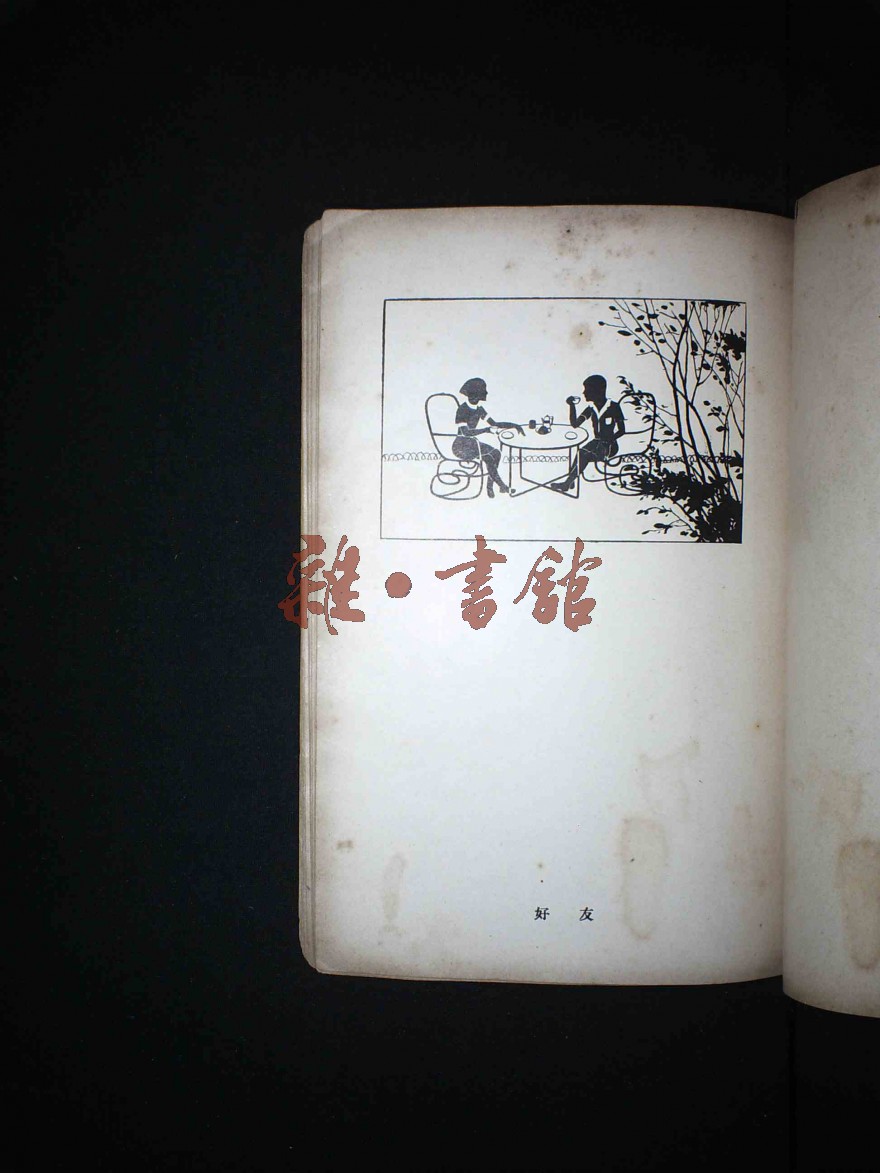 雜·書舘
好友